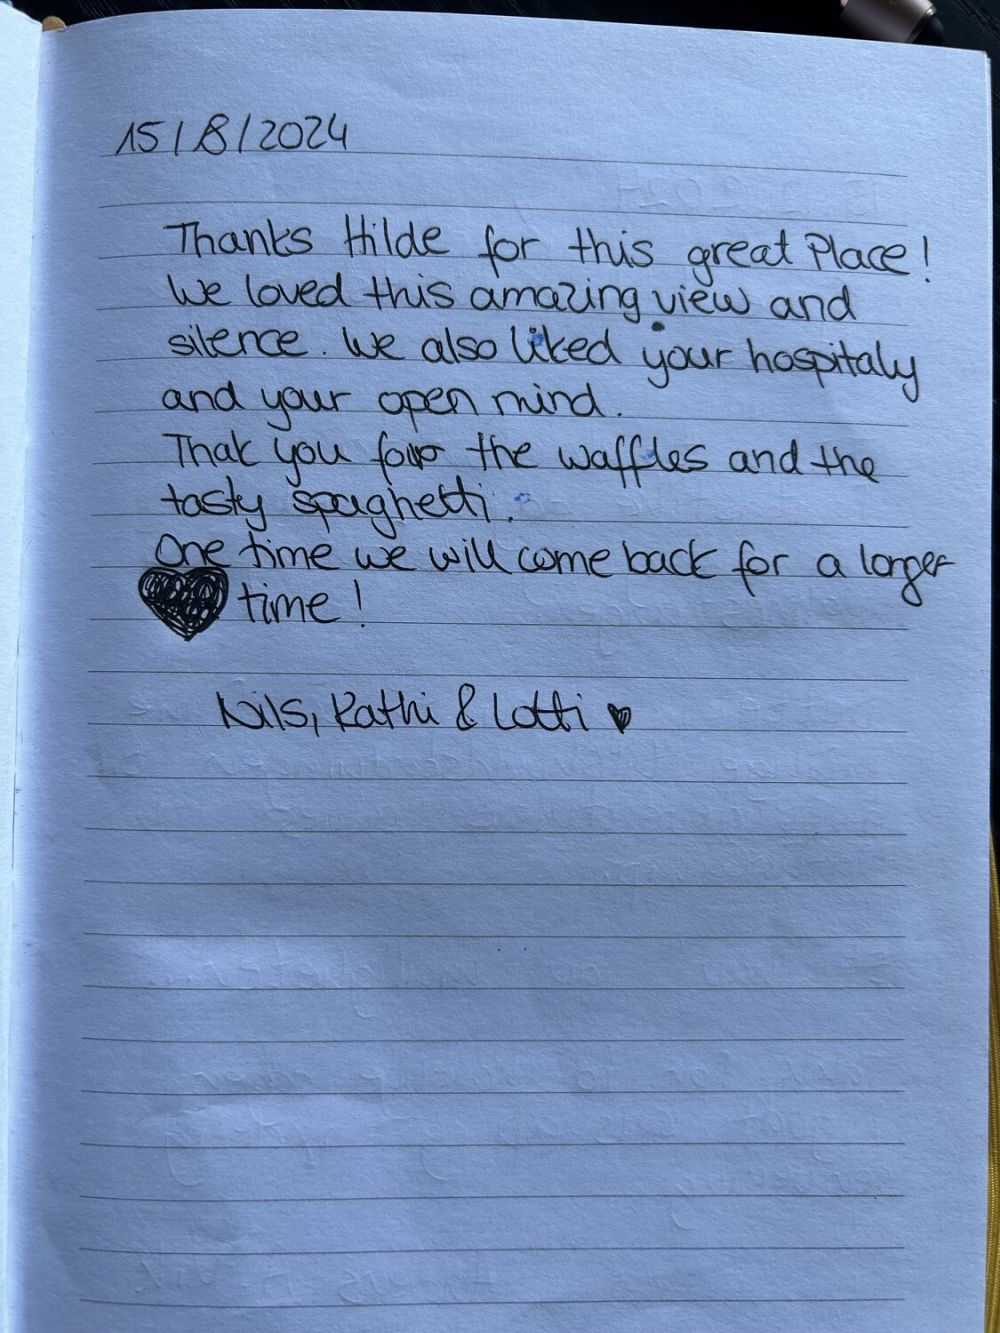 15/8/2024
Thanks Hilde for this great Place!
We loved this amazing view and
silence. We also liked your hospitaly
and your open mind.
Thak you for the waffles and the
tasty spaghetti.
One time we will come back for a longer
time!
Nils, Kathi & Lotti